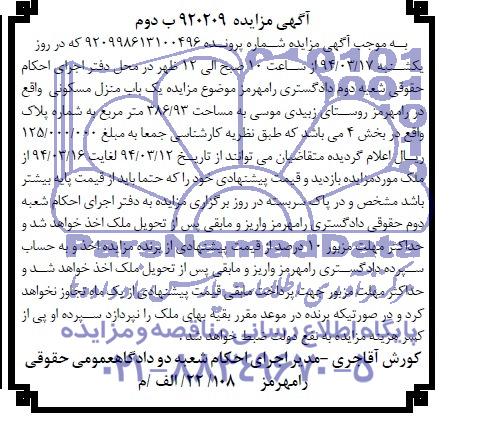 آگهی مزایده ۹۲۰۲۰۹ ب دوم
به موجب آگهی مزایده شماره پرونده ۹۲۰۹۹۸۶۱۳۱۰۰۴۹۶ که در روز
یکشنبه ۹۴/۰۳/۱۷ از ساعت ۱۰ صبح الی ۱۲ ظهر در محل دفتر اجرای احکام
حقوقی شعبه دوم دادگستری رامهرمز موضوع مزایده یک باب منزل مسکونی واقع
در رامهرمز روستای زبیدی موسی به مساحت ۳۸۶/۹۳ متر مربع به شماره پلاک
واقع در بخش ۴ می باشد که طبق نظریه کارشناسی جمعا به مبلغ ۱۲۵/۰۰۰/۰۰۰
ریال اعلام گردیده متقاضیان می توانند از تاریخ ۹۴/۰۳/۱۲ لغایت ۹۴/۰۳/۱۶ از
ملک موردمزایده بازدید و قیمت پیشنهادی خود را که حتما باید از قیمت پایه بیشتر
باشد مشخص و در پاک سربسته در روز برگزاری مزایده به دفتر اجرای احکام شعبه
دوم حقوقی دادگستری رامهرمز واریز و مابقی پس از تحویل ملک اخذ خواهد شد و
حداکثر مهلت مزبور ۱۰ درصد از قیمت پیشنهادی از برنده مزایده اخذ و به حساب
سپرده دادگستری رامهرمز واریز و مابقی پس از تحویل ملک اخذ خواهد شد و
حداکثر مهلت مزبور جهت پرداخت مابقی قیمت پیشنهادی از یک ماه تجاوز نخواهد
کرد و در صورتیکه برنده در موعد مقرر بقیه بهای ملک را نپردازد سپرده او پس از
کسر هزینه مزایده به نفع دولت ضبط خواهد شد.
کورش آقاجری -مدیر اجرای احکام شعبه دو دادگاهعمومی حقوقی
رامهرمز ۲۲/۱۰۸/ الف /م
ParsNamadData
پایگاه اطلاع رسانی مناقصه و مزایده
۰۲۱-۸۸۳۴۹۶۷۰-۵